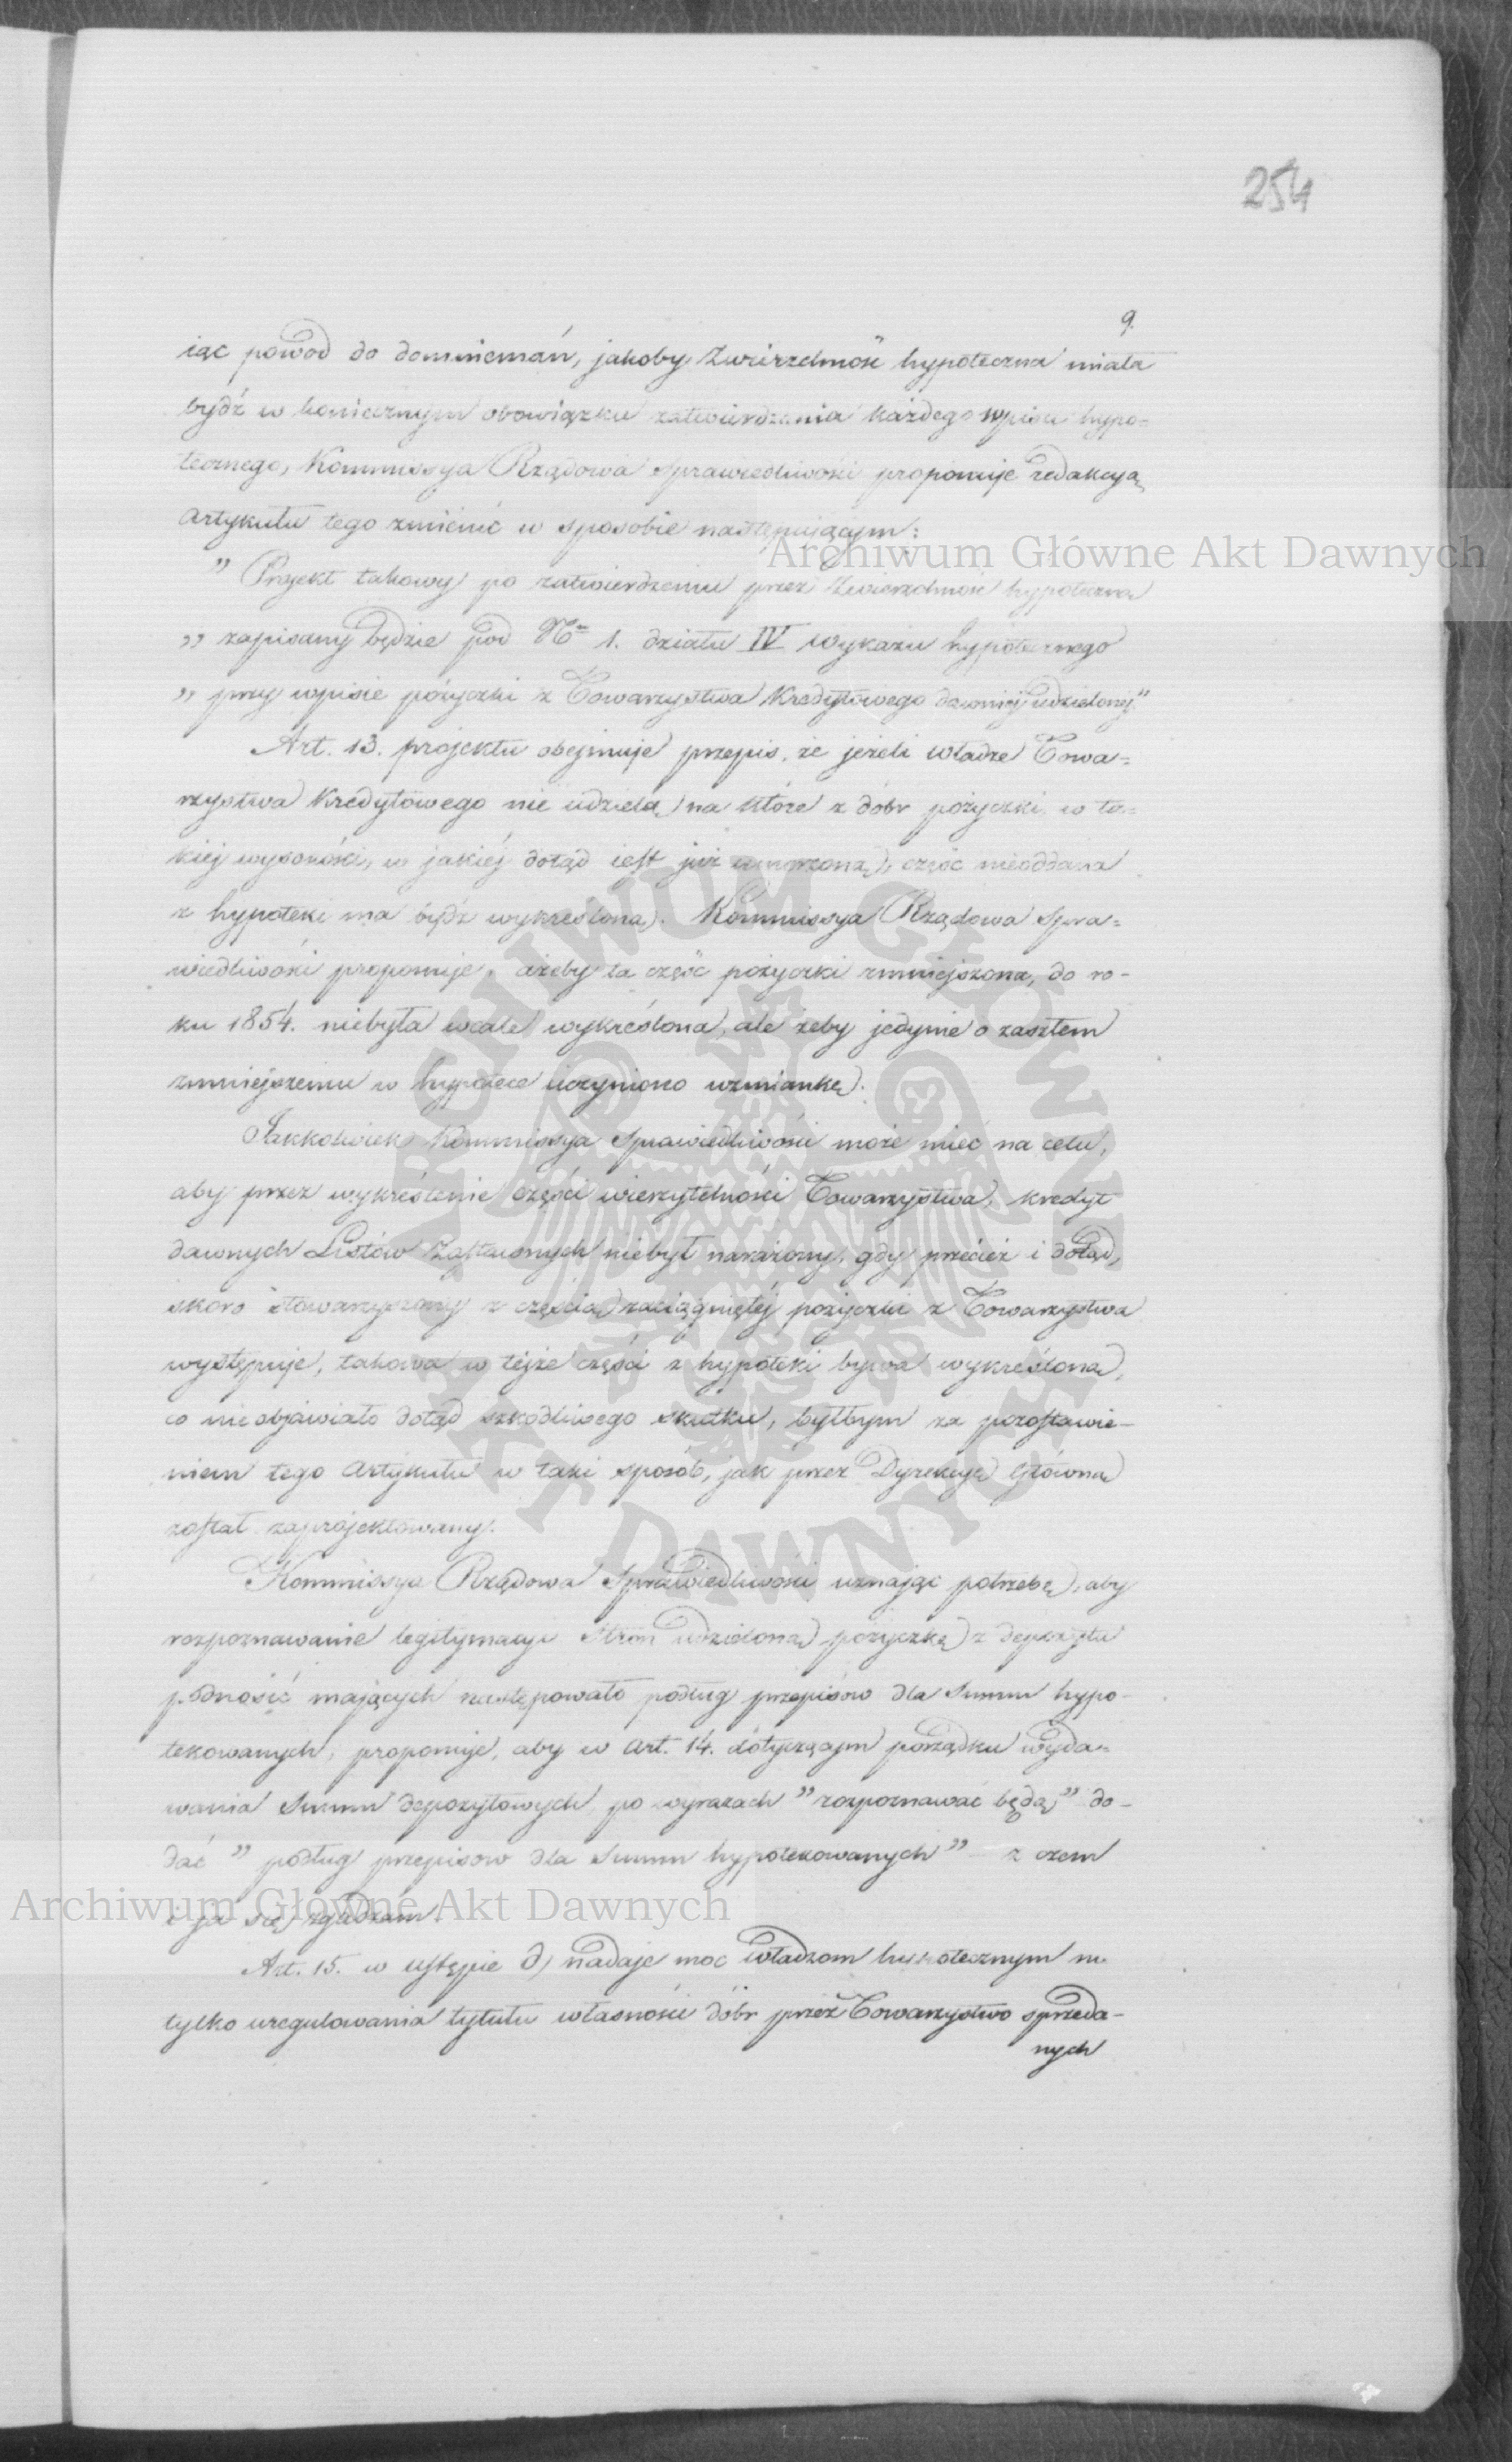 254
9.
iąc powod do domniemań, jakoby Zwierzchność hypoteczna miała
bydź w koniecznym obowiązku zatwierdzania każdego wpisu hypo=
tecznego, Kommissya Rządowa Sprawiedliwości proponuje redakcyą
Artykułu tego zmienić w sposobie następującym:
„ Projekt takowy po zatwierdzeniu przez Zwierzchność hypoteczną
„ zapisany będzie pod Nr 1. działu IV wykazu hypotecznego
„ przy wpisie pożyczki z Towarzystwa Kredytowego dawniej udzielonej"
Art. 13. projektu obejmuje przepis, że jeżeli władze Towa=
rzystwa Kredytowego nie udzielą na które z dóbr pożyczki w ta=
kiej wysokości, w jakiéj dotąd iest już umorzoną, część nieoddana
z hypoteki ma bydź wykreślona. Kommissya Rządowa Spra=
wiedliwości proponuje, ażeby ta część pożyczki zmniejszona, do ro-
ku 1854. niebyła wcale wykreślona, ale żeby jedynie o zaszłem
zmniejszeniu w hypotece uczyniono wzmiankę.
Jakkolwiek Kommissya Sprawiedliwości może mieć na celu,
aby przez wykreślenie części wierzytelności Towarzystwa, kredyt
dawnych Listów Zastawnych niebył narażony, gdy przecież i dotąd,
skoro stowarzyszony z częścią zaciągniętéj pożyczki z Towarzystwa
występuje, takowa w téjże części z hypoteki bywa wykreślona,
co nieobjawiało dotąd szkodliwego skutku, byłbym za pozostawie-
niem tego Artykułu w taki sposób, jak przez Dyrekcyę Główną
został zaprojektowany.
Kommissya Rządowa Sprawiedliwości uznając potrzebę, aby
rozpoznawanie legitymacyi Stron udzieloną pożyczkę z depozytu
podnosić mających następowało podług przepisów dla Summ hypo-
tekowanych, proponuje, aby w Art. 14. dotyczącym porządku wyda-
wania Summ depozytowych, po wyrazach " rozpoznawać będą" do-
dać " podług przepisow dla Summ hypotekowanych" – z czem
i ja się zgadzam.
Art. 15. w ustępie d) nadaje moc władzom hypotecznym nie
tylko uregulowania tytułu własności dóbr przez Towarzystwo sprzeda-
nych
Archiwum Główne Akt Dawnych
Archiwum Główne Akt Dawnych
ARCHIWUM GŁÓWNE AKT DAWNYCH